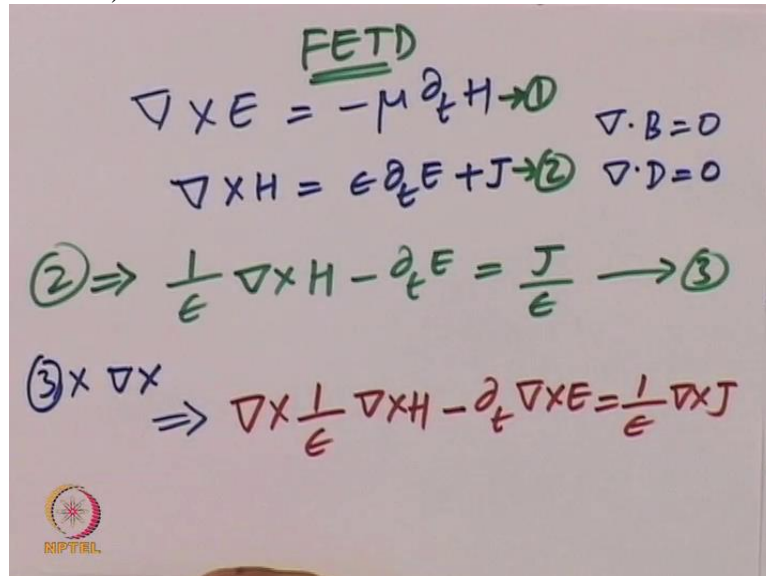 FETD
∇ × E = -μ ∂ₜ H → ①
∇ · B = 0
∇ × H = ϵ ∂ₜ E + J → ②
∇ · D = 0
② ⇒ 1/ϵ ∇ × H - ∂ₜ E = J/ϵ → ③
③ × ∇ ×
⇒ ∇ × 1/ϵ ∇ × H - ∂ₜ ∇ × E = 1/ϵ ∇ × J
NPTEL